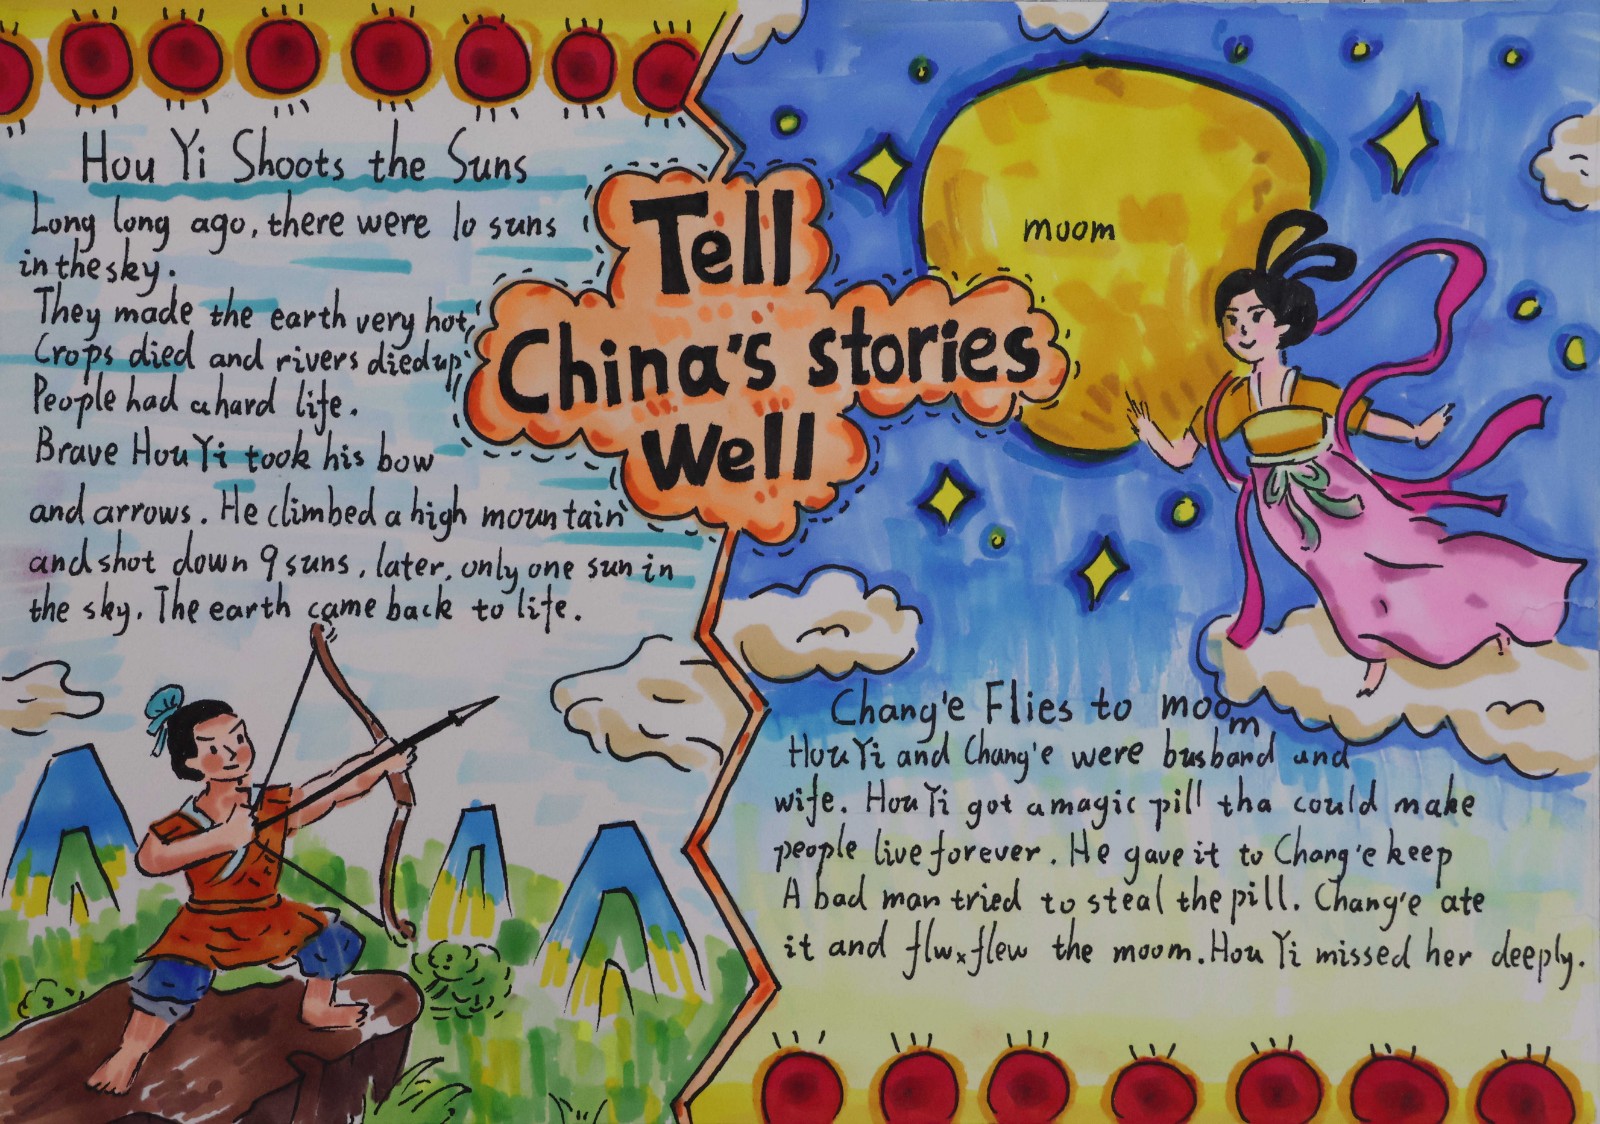 Hou Yi Shoots the Suns
Long long ago, there were 10 suns
in the sky.
They made the earth very hot,
Crops died and rivers died up,
People had a hard life.
Brave Hou Yi took his bow
and arrows. He climbed a high mountain
and shot down 9 suns, later, only one sun in
the sky. The earth came back to life.
Tell
China's stories
Well
moom
Chang'e Flies to moom
Hou Yi and Chang'e were busband and
wife. Hou Yi got a magic pill tha could make
people live forever. He gave it to Chang'e keep
A bad man tried to steal the pill. Chang'e ate
it and flw x flew the moom. Hou Yi missed her deeply.